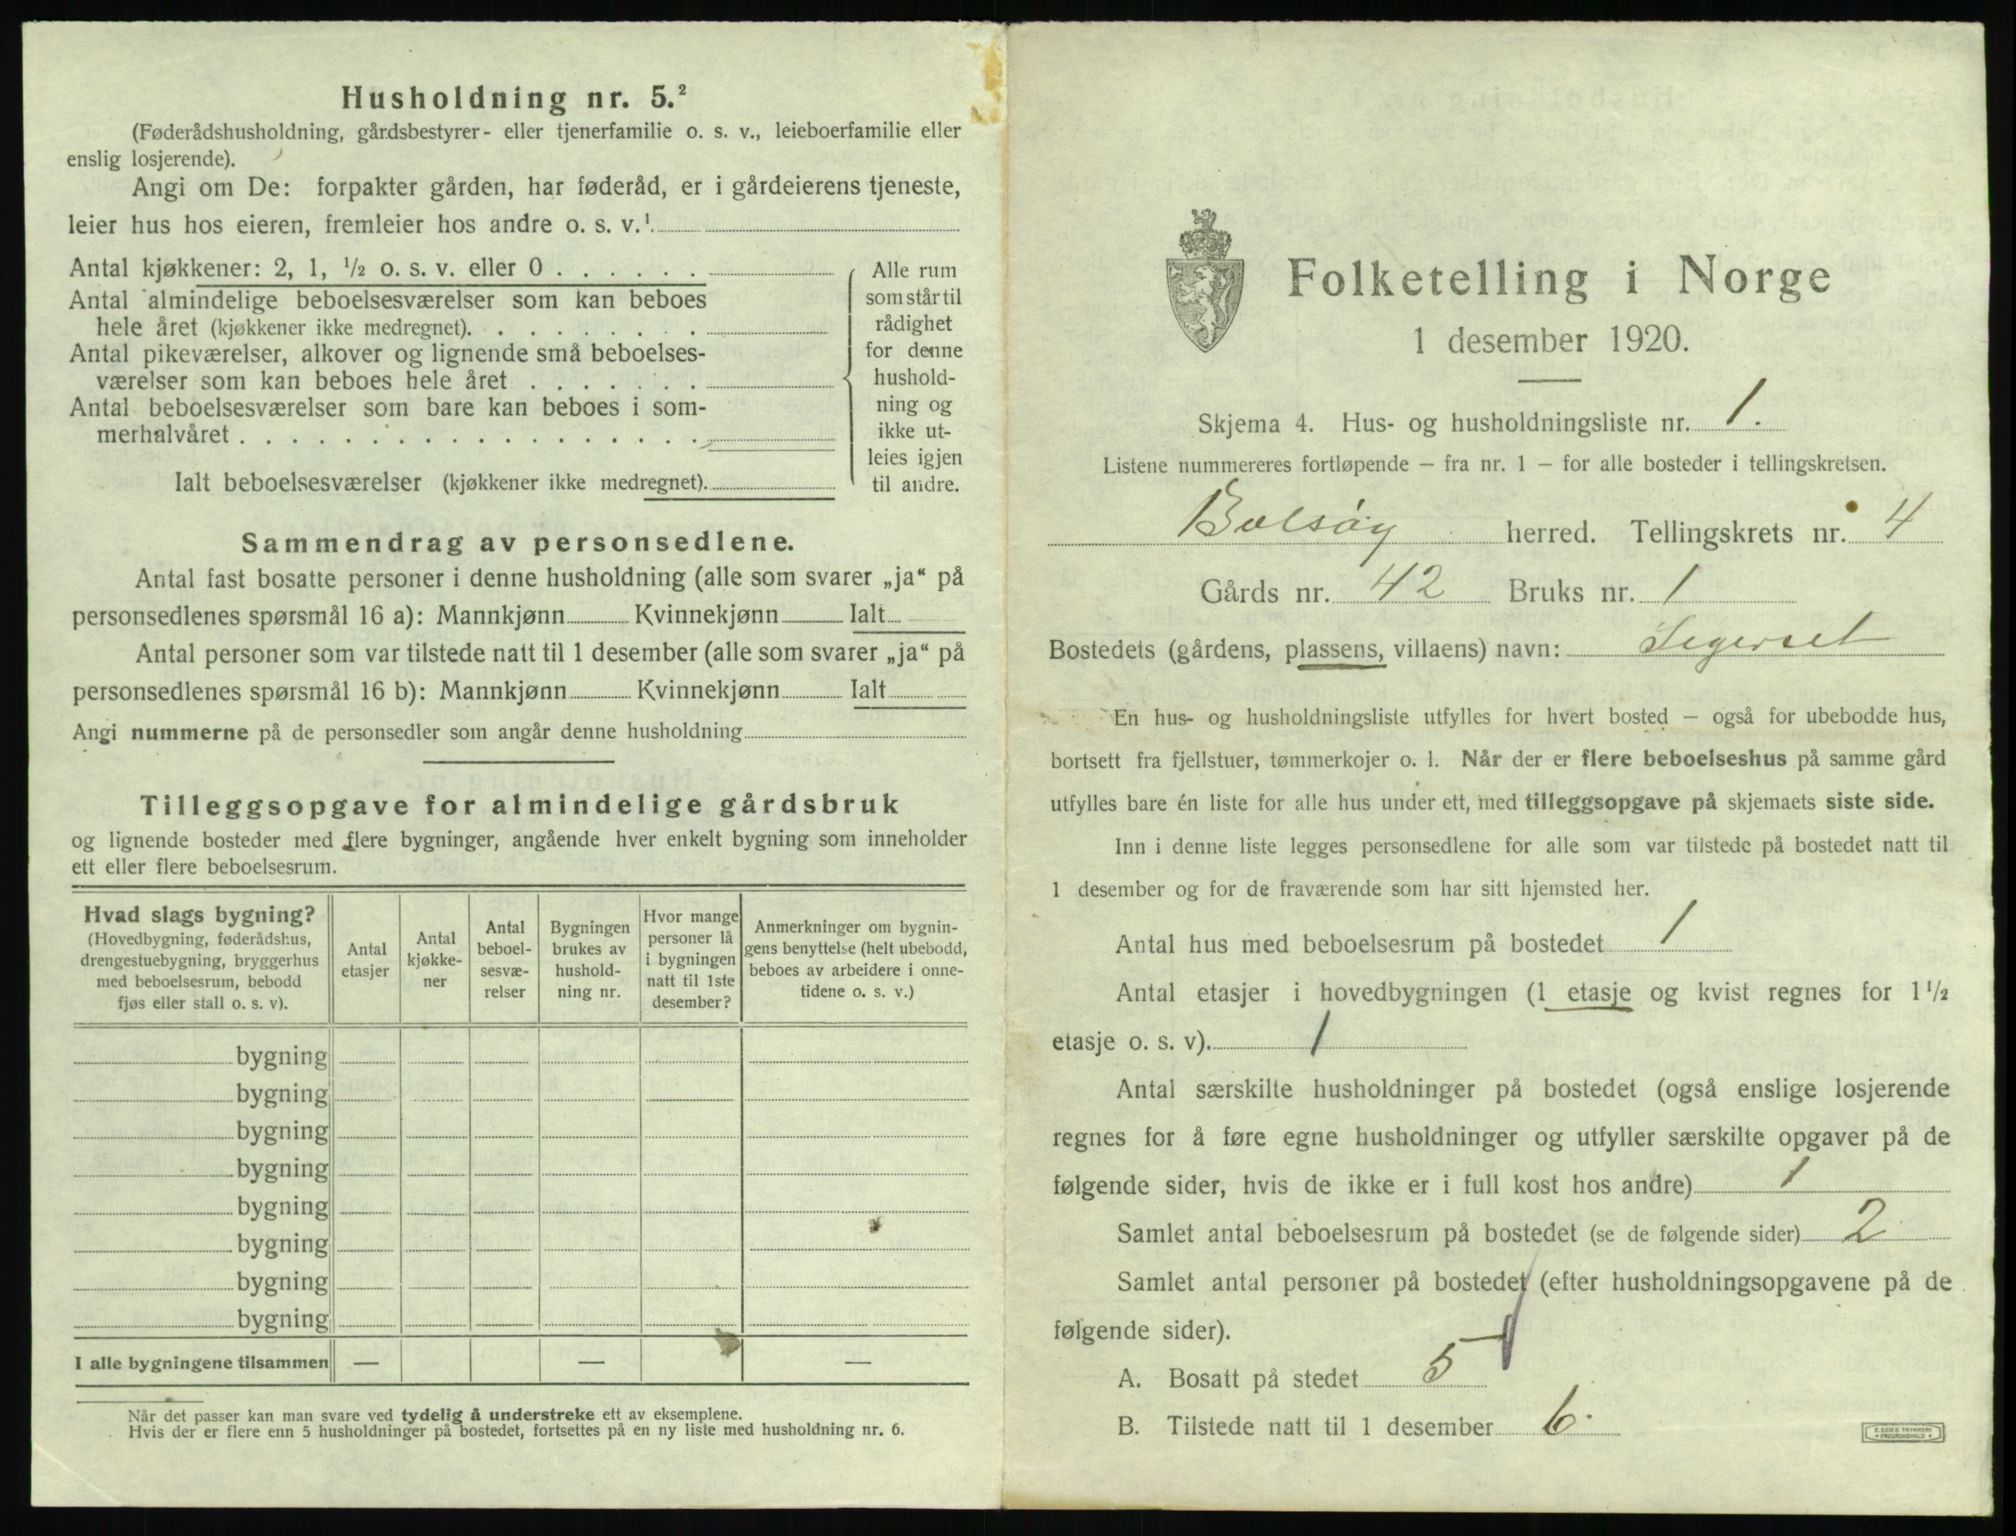 Husholdning nr. 5.²
(Føderådshusholdning, gårdsbestyrer- eller tjenerfamilie o. s. v., leieboerfamilie eller
enslig losjerende).
Angi om De: forpakter gården, har føderåd, er i gårdeierens tjeneste,
leier hus hos eieren, fremleier hos andre o. s. v.¹
Antal kjøkkener: 2, 1, ½ o. s. v. eller 0 . . . . . .
Antal almindelige beboelsesværelser som kan beboes
hele året (kjøkkener ikke medregnet). . . . . . . . .
Antal pikeværelser, alkover og lignende små beboelses-
værelser som kan beboes hele året . . . . . . .
Antal beboelsesværelser som bare kan beboes i som-
merhalvåret . . . . . . . . . . . . . . . . . .
Ialt beboelsesværelser (kjøkkener ikke medregnet).
Alle rum
som står til
rådighet
for denne
hushold-
ning og
ikke ut-
leies igjen
til andre.
Sammendrag av personsedlene.
Antal fast bosatte personer i denne husholdning (alle som svarer „ja“ på
personsedlenes spørsmål 16 a): Mannkjønn Kvinnekjønn Ialt
Antal personer som var tilstede natt til 1 desember (alle som svarer „ja“ på
personsedlenes spørsmål 16 b): Mannkjønn Kvinnekjønn Ialt
Angi nummerne på de personsedler som angår denne husholdning
Tilleggsopgave for almindelige gårdsbruk
og lignende bosteder med flere bygninger, angående hver enkelt bygning som inneholder
ett eller flere beboelsesrum.
Hvad slags bygning?
(Hovedbygning, føderådshus,
drengestuebygning, bryggerhus
med beboelsesrum, bebodd
fjøs eller stall o. s. v).
Antal
etasjer
Antal
kjøkke-
ner
Antal
beboel-
sesvæ-
relser
Bygningen
brukes av
hushold-
ning nr.
Hvor mange
personer lå
i bygningen
natt til 1ste
desember?
Anmerkninger om bygnin-
gens benyttelse (helt ubebodd,
beboes av arbeidere i onne-
tidene o. s. v.)
bygning
bygning
bygning
bygning
bygning
bygning
bygning
bygning
I alle bygningene tilsammen — — —
Når det passer kan man svare ved tydelig å understreke ett av eksemplene.
Hvis der er flere enn 5 husholdninger på bostedet, fortsettes på en ny liste med husholdning nr. 6.
Folketelling i Norge
1 desember 1920.
Skjema 4. Hus- og husholdningsliste nr. 1.
Listene nummereres fortløpende — fra nr. 1 — for alle bosteder i tellingskretsen.
Bolsøy herred. Tellingskrets nr. 4
Gårds nr. 42 Bruks nr. 1
Bostedets (gårdens, plassens, villaens) navn: Segerset
En hus- og husholdningsliste utfylles for hvert bosted — også for ubebodde hus,
bortsett fra fjellstuer, tømmerkojer o. l. Når der er flere beboelseshus på samme gård
utfylles bare én liste for alle hus under ett, med tilleggsopgave på skjemaets siste side.
Inn i denne liste legges personsedlene for alle som var tilstede på bostedet natt til
1 desember og for de fraværende som har sitt hjemsted her.
Antal hus med beboelsesrum på bostedet 1
Antal etasjer i hovedbygningen (1 etasje og kvist regnes for 1 ½
etasje o. s. v). 1
Antal særskilte husholdninger på bostedet (også enslige losjerende
regnes for å føre egne husholdninger og utfyller særskilte opgaver på de
følgende sider, hvis de ikke er i full kost hos andre) 1
Samlet antal beboelsesrum på bostedet (se de følgende sider) 2
Samlet antal personer på bostedet (efter husholdningsopgavene på de
følgende sider).
A. Bosatt på stedet 5
B. Tilstede natt til 1 desember 6.